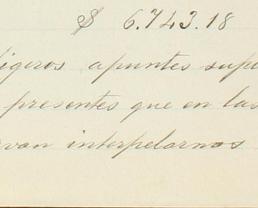 $ 6.743.18
ligeros apuntes supe
presentes que en las
van interpelarnos